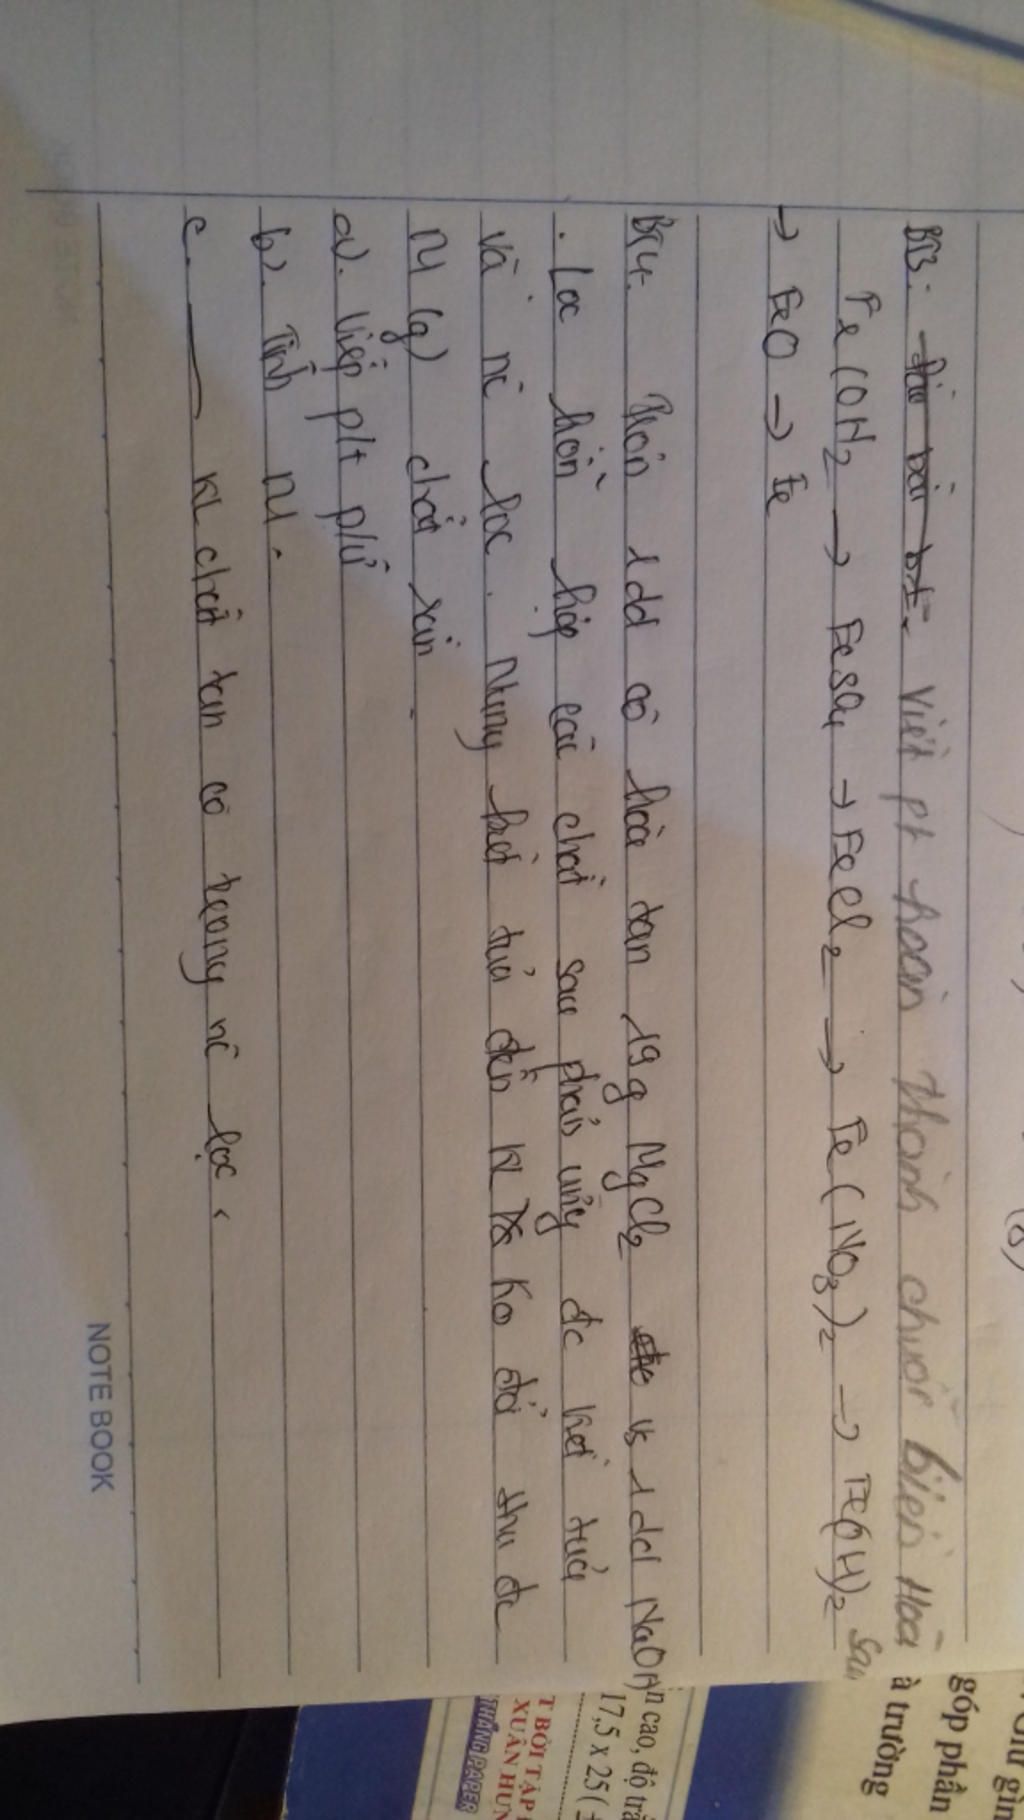 BT3: Viết pt hoàn thành chuỗi biến hoá sau
Fe(OH)2 → FeSO4 → FeCl2 → Fe(NO3)2 → Fe(OH)2
→ FeO → Fe
BT4. Trộn 1dd có hoà tan 19g MgCl2 vs 1dd NaOH
. Lọc hỗn hợp các chất sau phản ứng đc kết tủa
và nc lọc. Nung kết tủa đến kl ko đổi thu đc
M (g) chất rắn.
a). Viết ptpứ
b). Tính M.
c. KL chất tan có trong nc lọc.
NOTE BOOK
góp phần
à trường
n cao, độ trắ
17,5 x 25 (
T BỞI TẬP
XUÂN HƯN
THẮNG PAPER